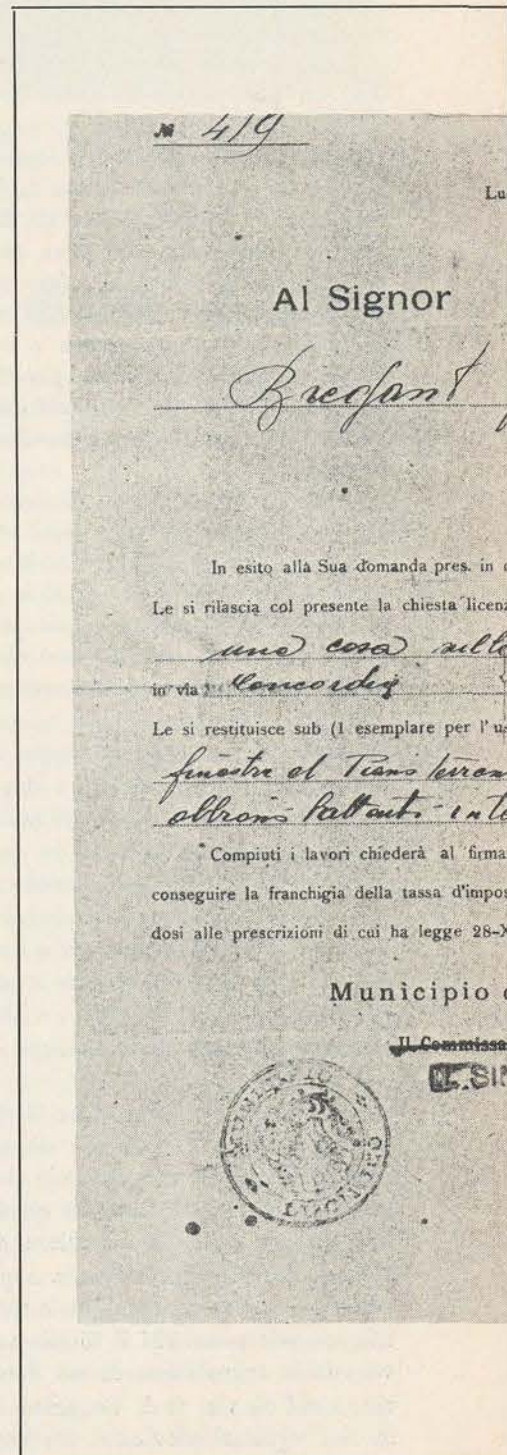 № 419
Lu
Al Signor
Bregant
In esito alla Sua domanda pres. in
Le si rilascia col presente la chiesta licenz
una casa sulle
in via Concordia
Le si restituisce sub (1 esemplare per l'us
finestre al Piano terran
abbiano battenti inte
Compiuti i lavori chiederà al firma
conseguire la franchigia della tassa d'impos
dosi alle prescrizioni di cui ha legge 28-X
Municipio
Il Commissa
IL SIN
MUNICIPIO
LUCINICO